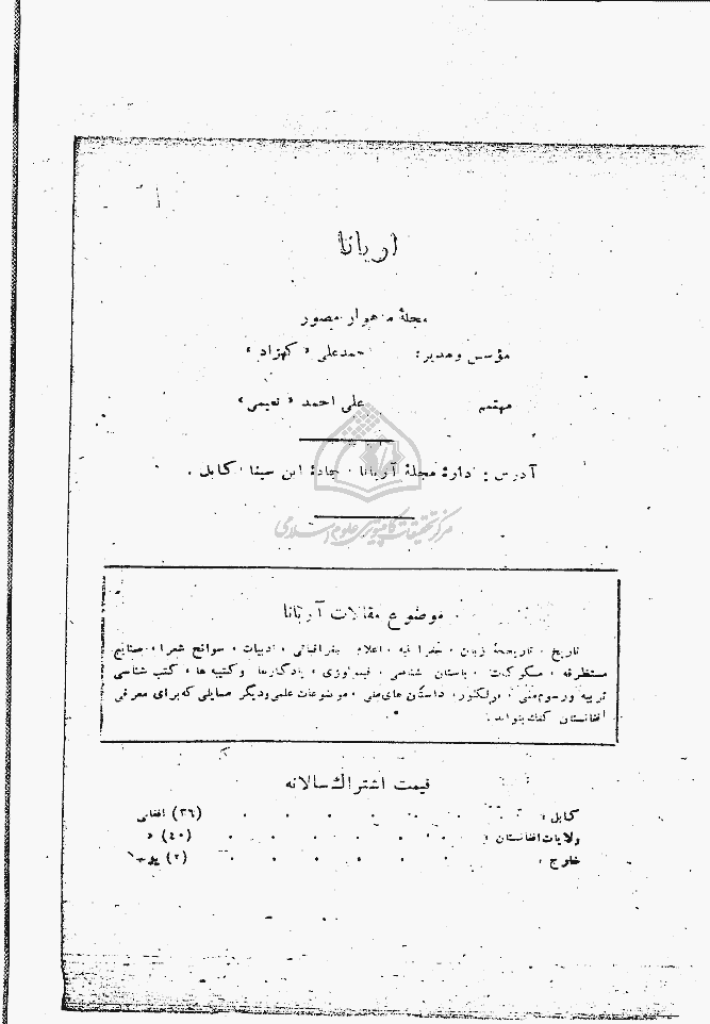 آریانا
مجلهٔ ماهوار مصور
مؤسس ومدیر: احمدعلی «کهزاد»
مهتمم علی احمد «نعیمی»
آدرس: ادارهٔ مجلهٔ آریانا، جادهٔ ابن سینا، کابل.
مرکز تحقیقات کامپیوتری علوم اسلامی
موضوع مقالات آریانا
تاریخ، تاریخچهٔ زبان، جغرافیه، اعلام جغرافیائی، ادبیات، سوانح شعرا، صنایع
مستظرفه، مسکوکات، باستان شناسی، فیلولوژی، یادگارها وکتیبه ها، کتب شناسی
تربیه ورسوم ملی، فولکلور، داستان های ملی، موضوعات علمی ودیگر مسایلی که برای معرفی
افغانستان کمک بتواند.
قیمت اشتراك سالانه
کابل: (۳٦) افغانی
ولایات افغانستان: (٤۰) »
خارج: (۲)